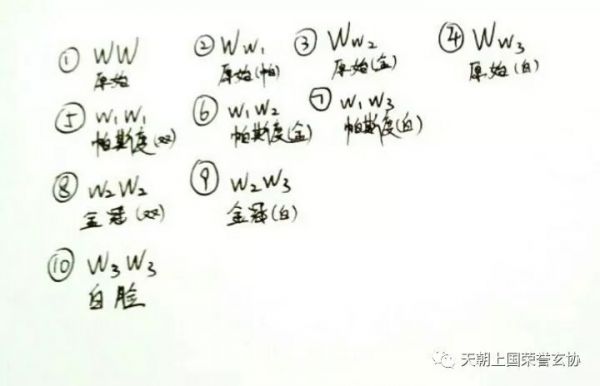 ① WW ② Ww₁ ③ Ww₂ ④ Ww₃
原始 原始(帕) 原始(金) 原始(白)
⑤ w₁w₁ ⑥ w₁w₂ ⑦ w₁w₃
帕斯度(双) 帕斯度(金) 帕斯度(白)
⑧ w₂w₂ ⑨ w₂w₃
金冠(双) 金冠(白)
⑩ w₃w₃
白脸
天朝上国荣誉玄协